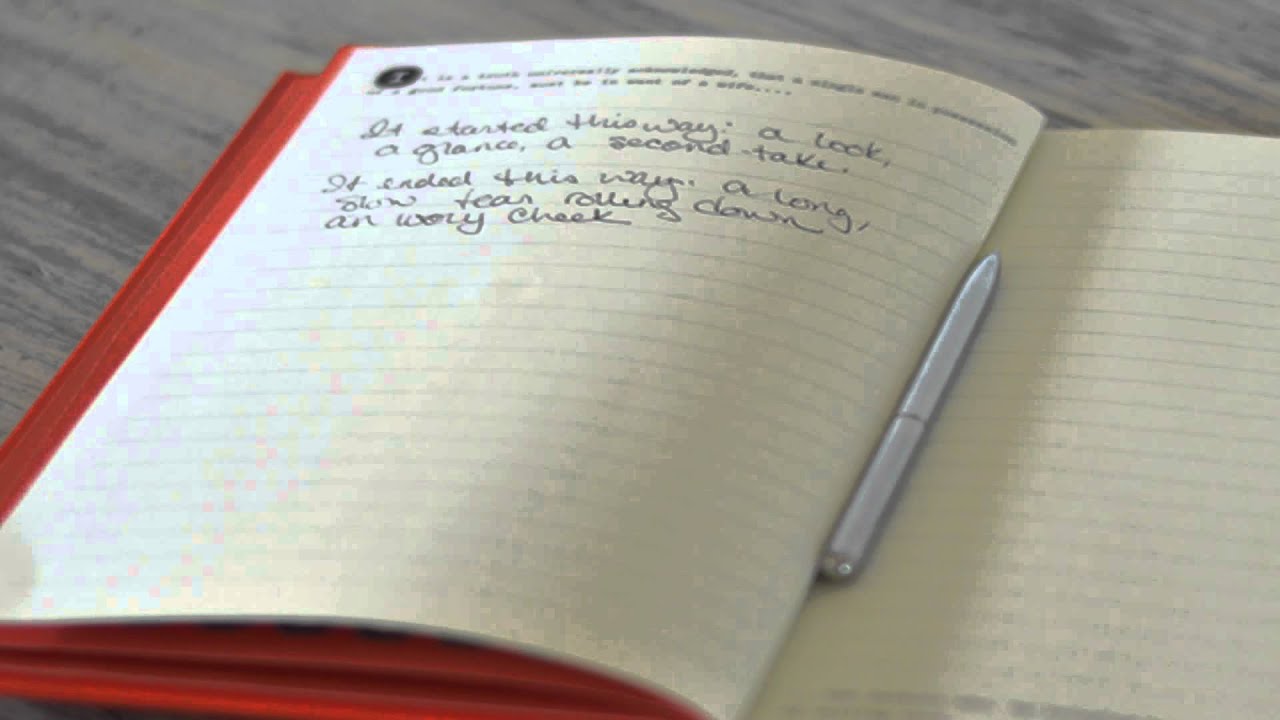 It is a truth universally acknowledged, that a single man in possession
of a good fortune, must be in want of a wife....
It started this way: a look,
a glance, a second take.
It ended this way. a long,
slow tear rolling down
an ivory cheek